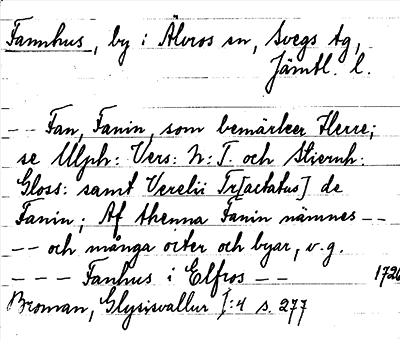 Fannhus, by i Älvros sn, Svegs tg,
Jämtl. l.
-- Fan, Fanin, som bemärker Herre;
se Ulph: Vers: N: T. och Stiernh:
Gloss: samt Verelii Tr[actatus] de
Fanin; Af thenna Fanin nämnes --
-- och många orter och byar, v. g.
--- Fanhus i Elfros -- 1726
Broman, Glysisvallur I:4 s. 277